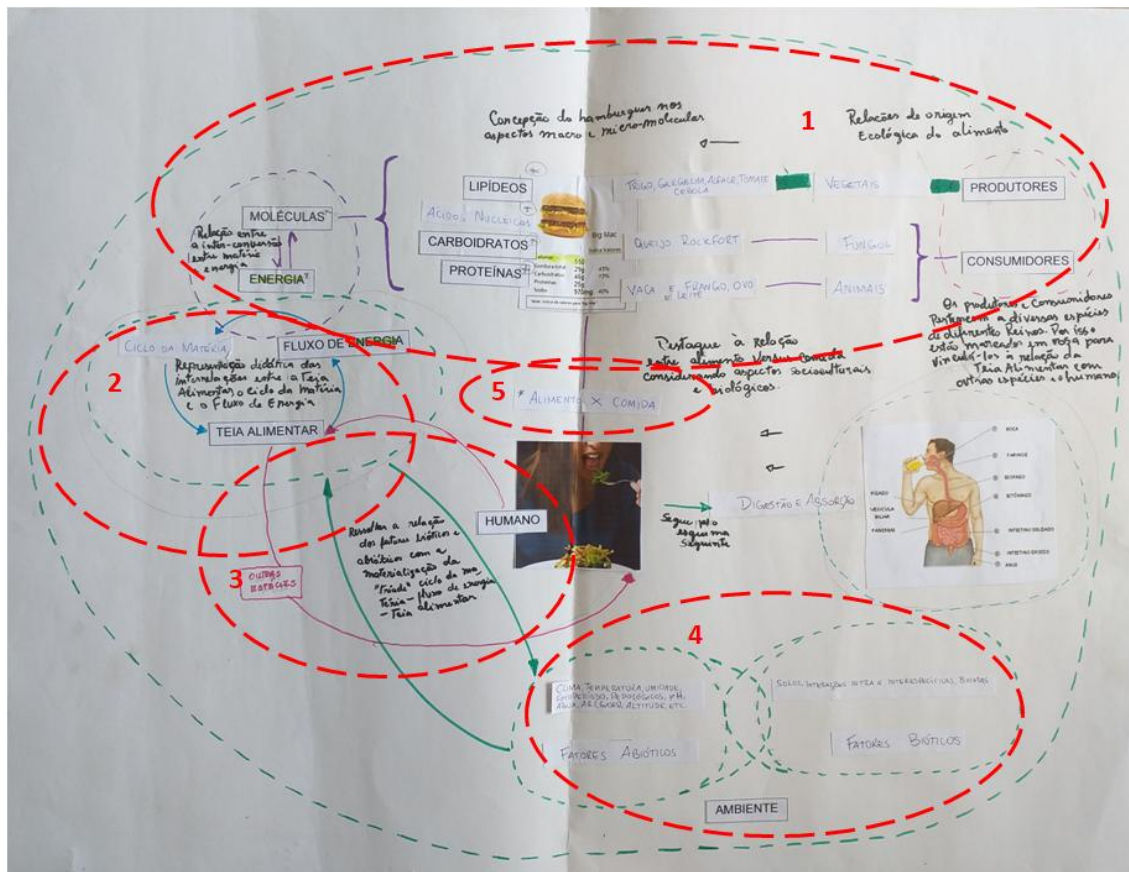 1
Concepção do hamburguer nos
aspectos macro e micro-molecular
Relações de origem
Ecológica do alimento
LIPÍDEOS
ÁCIDO NUCLEICOS
CARBOIDRATOS
PROTEÍNAS
MOLÉCULAS
Relação entre
a inter-conversão
entre matéria
energia
ENERGIA
Big Mac
TRIGO, GERGELIM, ALFACE, TOMATE
CEBOLA
VEGETAIS
PRODUTORES
QUEIJO ROCKFORT
FUNGOS
CONSUMIDORES
VACA E FRANGO, OVO
E LEITE
ANIMAIS
Os produtores e consumidores
Pertencem a diversas espécies
de diferentes Reinos. Por isso
estão marcados em rosa para
vinculá-los à relação da
Teia Alimentar com
outras espécies e o humano.
2
CICLO DA MATÉRIA
FLUXO DE ENERGIA
Representação didática das
interrelações entre a Teia
Alimentar, o ciclo da matéria
e o Fluxo de Energia
TEIA ALIMENTAR
Destaque à Relação
entre alimento versus comida
considerando aspectos socioculturais
e biológicos.
5
* ALIMENTO X COMIDA
HUMANO
Segue pelo
esquema
seguinte
DIGESTÃO E ABSORÇÃO
BOCA
FARINGE
ESÔFAGO
ESTÔMAGO
FÍGADO
VESÍCULA
BILIAR
PÂNCREAS
INTESTINO DELGADO
INTESTINO GROSSO
ÂNUS
3
OUTRAS
ESPÉCIES
Ressaltar a relação
dos fatores bióticos e
abióticos com a
materialização da
"tríade" ciclo da ma
téria - fluxo de energia
- Teia alimentar
4
CLIMA, TEMPERATURA, UMIDADE,
EDAFICOS, PEDOLÓGICOS, pH,
ÁGUA, AR (GASES), ALTITUDE, ETC.
FATORES ABIÓTICOS
SOLOS, INTERAÇÕES INTRA E INTERESPECÍFICAS, BIOMAS
FATORES BIÓTICOS
AMBIENTE